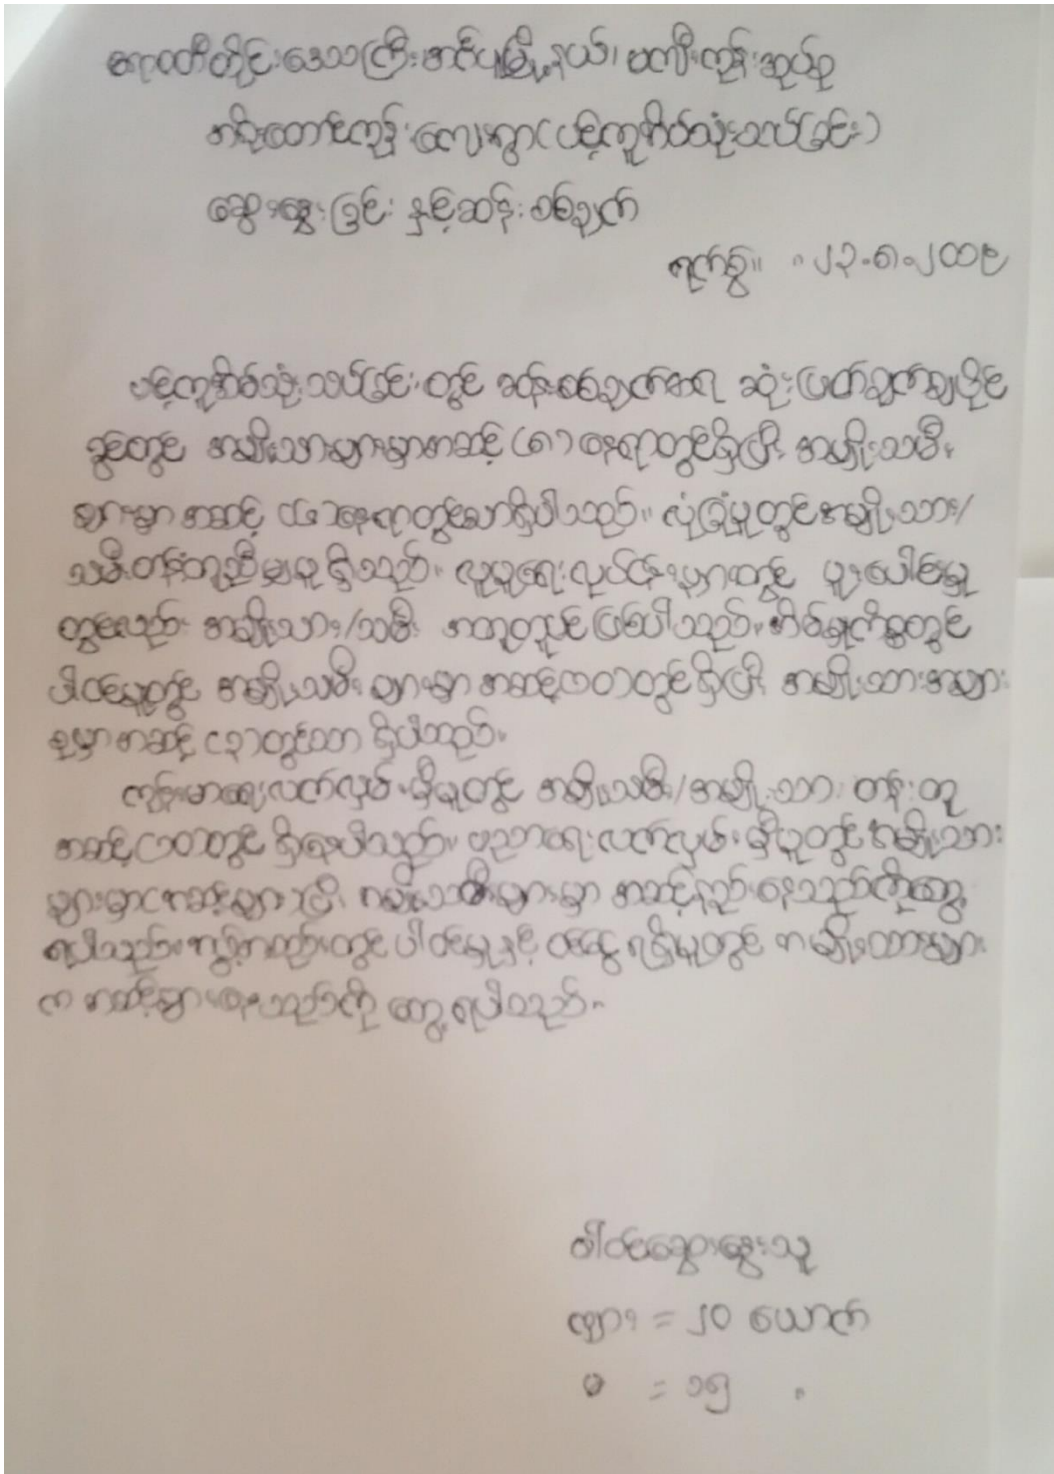 ဧရာဝတီတိုင်းဒေသကြီး၊ အင်္ဂပူမြို့နယ်၊ မကျီးကုန်းအုပ်စု
အစိုးတောင်ကုန်းလေးရွာ (ပင့်ကူအိမ်သုံးသပ်ခြင်း)
ဆွေးနွေးခြင်း နှင့်ဆန်းစစ်ချက်
ရက်စွဲ။ ။ ၂၃.၈.၂၀၁၉
ပင့်ကူအိမ်သုံးသပ်ခြင်းတွင် ဆန်းစစ်ချက်အရ ဆုံးဖြတ်ချက်ချပိုင်
ခွင့်တွင် အမျိုးသားများမှာအဆင့် (၈) နေရာတွင်ရှိပြီး အမျိုးသမီး
များမှာ အဆင့် (၆) နေရာတွင်သာရှိပါသည်။ လုံခြုံမှုတွင်အမျိုးသား/
သမီးတန်းတူညီမျှမှု ရှိသည်။ လူမှုရေးလုပ်ငန်းများတွင် ပူးပေါင်းမှု
တွင်လည်း အမျိုးသား/သမီး အတူတူပင်ဖြစ်ပါသည်။ အိမ်မှုကိစ္စတွင်
ပါဝင်မှုတွင် အမျိုးသမီး များမှာ အဆင့် (၁၀) တွင်ရှိပြီး အမျိုးသားအများ
စုမှာ အဆင့် (၃) တွင်သာ ရှိပါသည်။
ကျန်းမာရေးလက်လှမ်းမှီမှုတွင် အမျိုးသမီး/အမျိုးသား တန်းတူ
အဆင့် (၁၀) တွင် ရှိနေပါသည်။ ပညာရေးလက်လှမ်းမှီမှုတွင် အမျိုးသား
များမှာ အဆင့်များပြီး အမျိုးသမီးများမှာ အဆင့်နည်းနေသည်ကိုတွေ့
ရပါသည်။ ကွန်ရက်တွင် ပါဝင်မှုနှင့် ဝင်ငွေ ရရှိမှုတွင် အမျိုးသားများ
က အဆင့်များနေသည်ကို တွေ့ရပါသည်။
ပါဝင်ဆွေးနွေးသူ
ကျား = ၂၀ ယောက်
မ = ၁၅ "